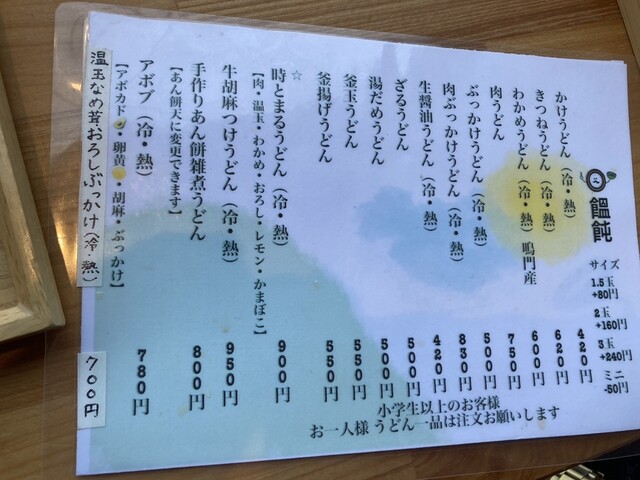 饂飩
サイズ
1.5玉 +80円
2玉 +160円
3玉 +240円
ミニ -50円
かけうどん（冷・熱） 420円
きつねうどん（冷・熱） 620円
わかめうどん（冷・熱）鳴門産 600円
肉うどん 750円
ぶっかけうどん（冷・熱） 500円
肉ぶっかけうどん（冷・熱） 830円
生醤油うどん（冷・熱） 420円
ざるうどん 500円
湯だめうどん 500円
釜玉うどん 550円
釜揚げうどん 550円
☆時とまるうどん（冷・熱） 900円
【肉・温玉・わかめ・おろし・レモン・かまぼこ】
牛胡麻つけうどん（冷・熱） 950円
手作りあん餅雑煮うどん 800円
【あん餅天に変更できます】
アボブ（冷・熱） 780円
【アボカド・卵黄・胡麻・ぶっかけ】
温玉なめ茸おろしぶっかけ（冷・熱） 700円
小学生以上のお客様
お一人様 うどん一品は注文お願いします